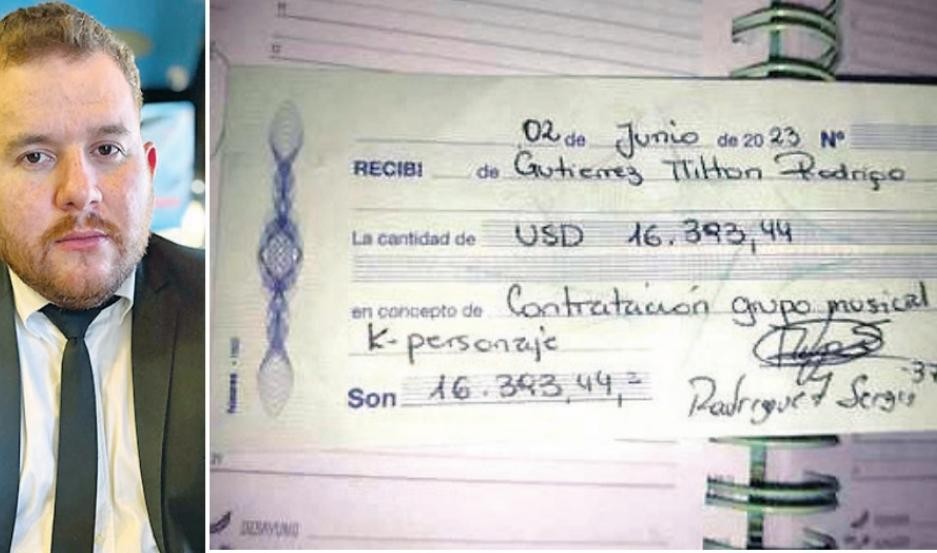 02 de Junio de 2023 Nº
RECIBI de Gutierrez Milton Rodrigo
La cantidad de USD 16.393,44
en concepto de Contratación grupo musical
K-personaje
Son 16.393,44=
Rodriguez Sergio
DESAYUNO